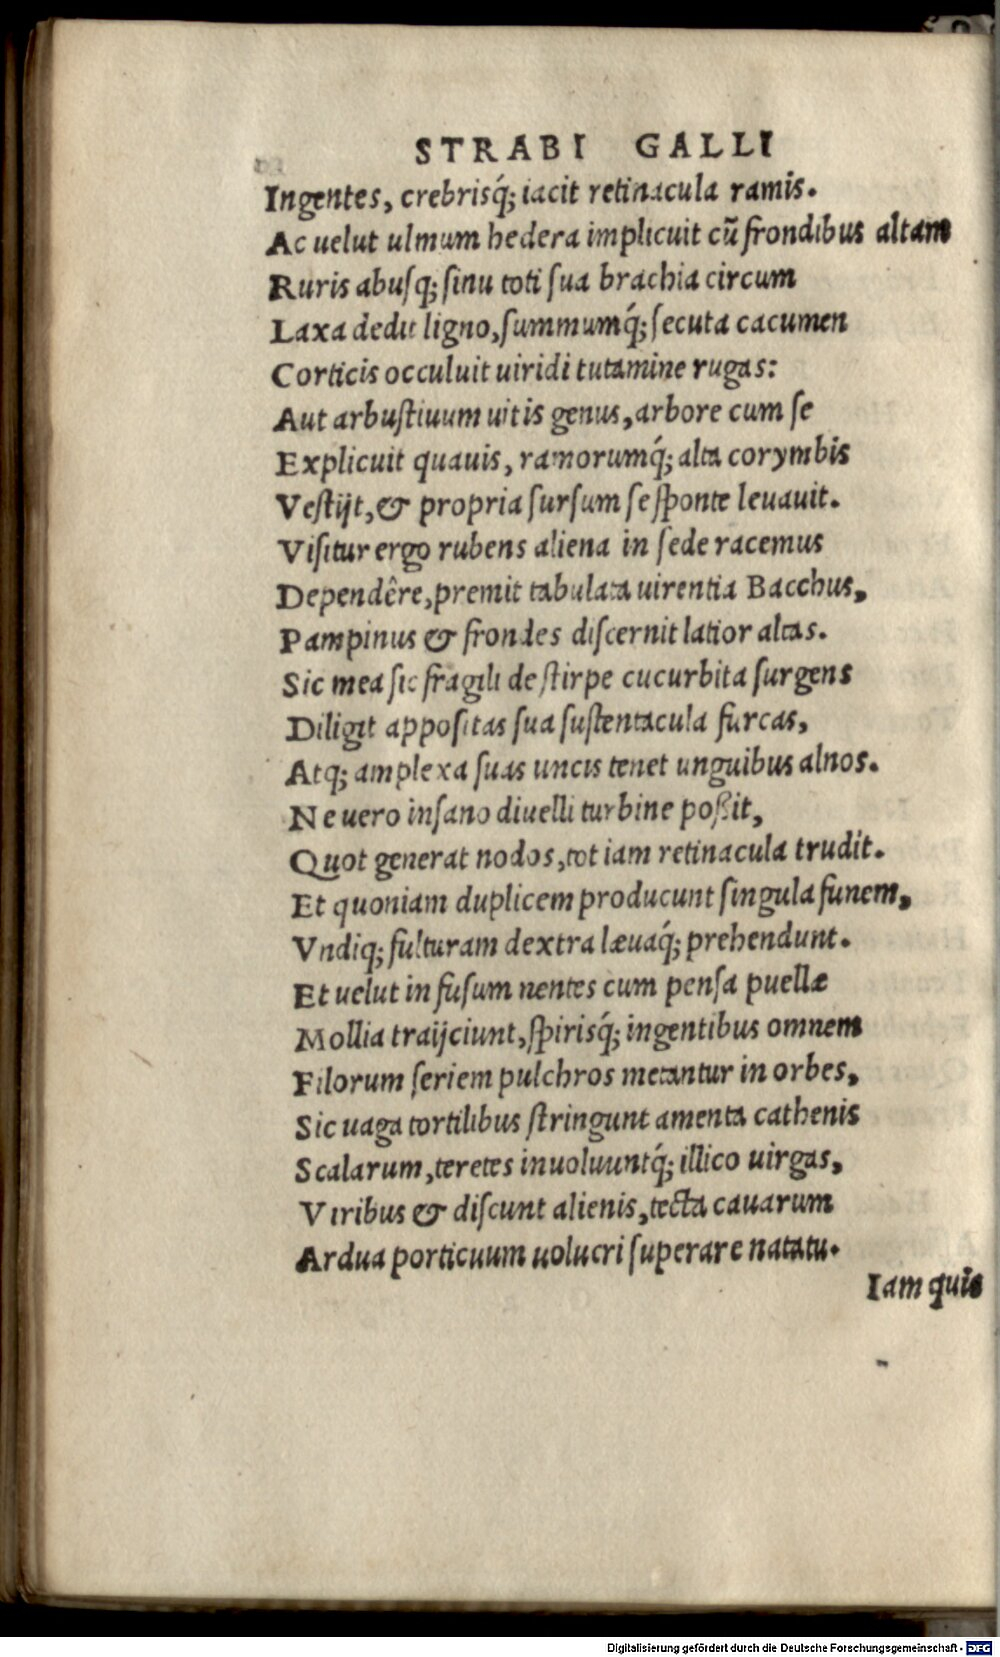 STRABI GALLI
Ingentes, crebrisq́; iacit retinacula ramis.
Ac uelut ulmum hedera implicuit cũ frondibus altam
Ruris abuſq; ſinu toti ſua brachia circum
Laxa dedit ligno, ſummumq́; ſecuta cacumen
Corticis occuluit uiridi tutamine rugas:
Aut arbuſtiuum uitis genus, arbore cum ſe
Explicuit quauis, ramorumq́; alta corymbis
Veſtijt, & propria ſurſum ſe ſponte leuauit.
Viſitur ergo rubens aliena in ſede racemus
Dependêre, premit tabulata uirentia Bacchus,
Pampinus & frondes diſcernit latior altas.
Sic mea ſic fragili de ſtirpe cucurbita ſurgens
Diligit appoſitas ſua ſuſtentacula furcas,
Atq; amplexa ſuas uncis tenet unguibus alnos.
Ne uero inſano diuelli turbine poßit,
Quot generat nodos, tot iam retinacula trudit.
Et quoniam duplicem producunt ſingula funem,
Vndiq; fulturam dextra læuaq́; prehendunt.
Et uelut in fuſum nentes cum penſa puellæ
Mollia traijciunt, ſpirisq́; ingentibus omnem
Filorum ſeriem pulchros metantur in orbes,
Sic uaga tortilibus ſtringunt amenta cathenis
Scalarum, teretes inuoluuntq́; illico uirgas,
Viribus & diſcunt alienis, tecta cauarum
Ardua porticuum uolucri ſuperare natatu.
Iam quis
Digitalisierung gefördert durch die Deutsche Forschungsgemeinschaft - DFG